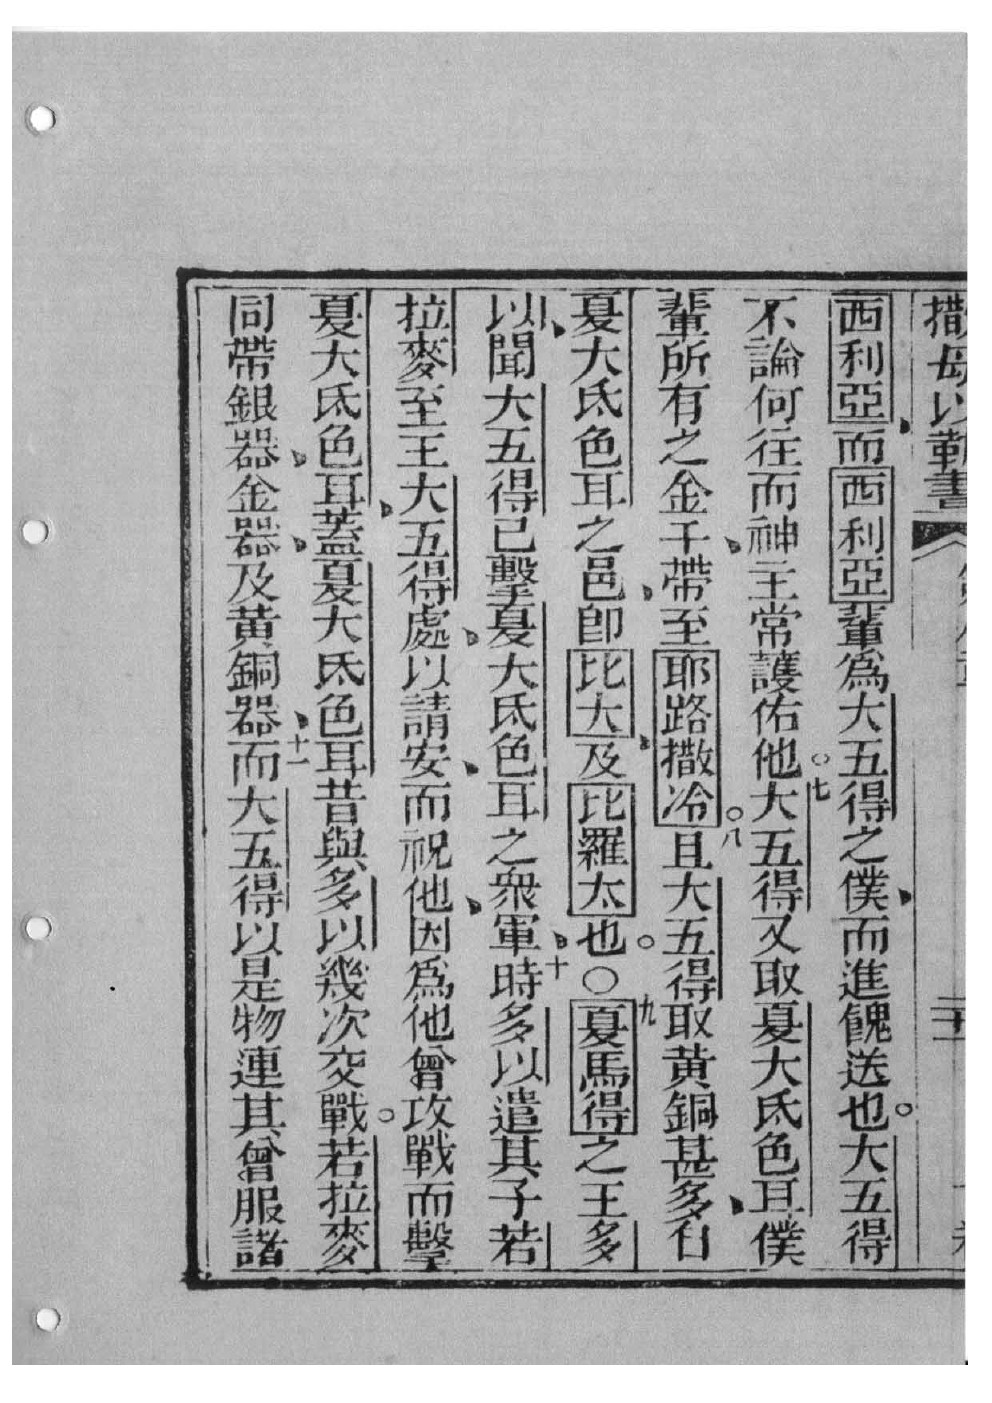 撒母以勒書
西利亞、而西利亞輩爲大五得之僕、而進餽送也。大五得
不論何往而神主常護佑他。七大五得又取夏大氐色耳僕
輩所有之金干、帶至耶路撒冷。八且大五得取黃銅甚多、自
夏大氐色耳之邑、卽比大、及比羅太也。○九夏馬得之王多
以、聞大五得已擊夏大氐色耳之衆軍、十時多以遣其子若
拉麥至王大五得處、以請安、而祝他、因爲他曾攻戰而擊
夏大氐色耳、蓋夏大氐色耳昔與多以幾次交戰。若拉麥
同帶銀器、金器、及黃銅器、十一而大五得以是物連其曾服諸